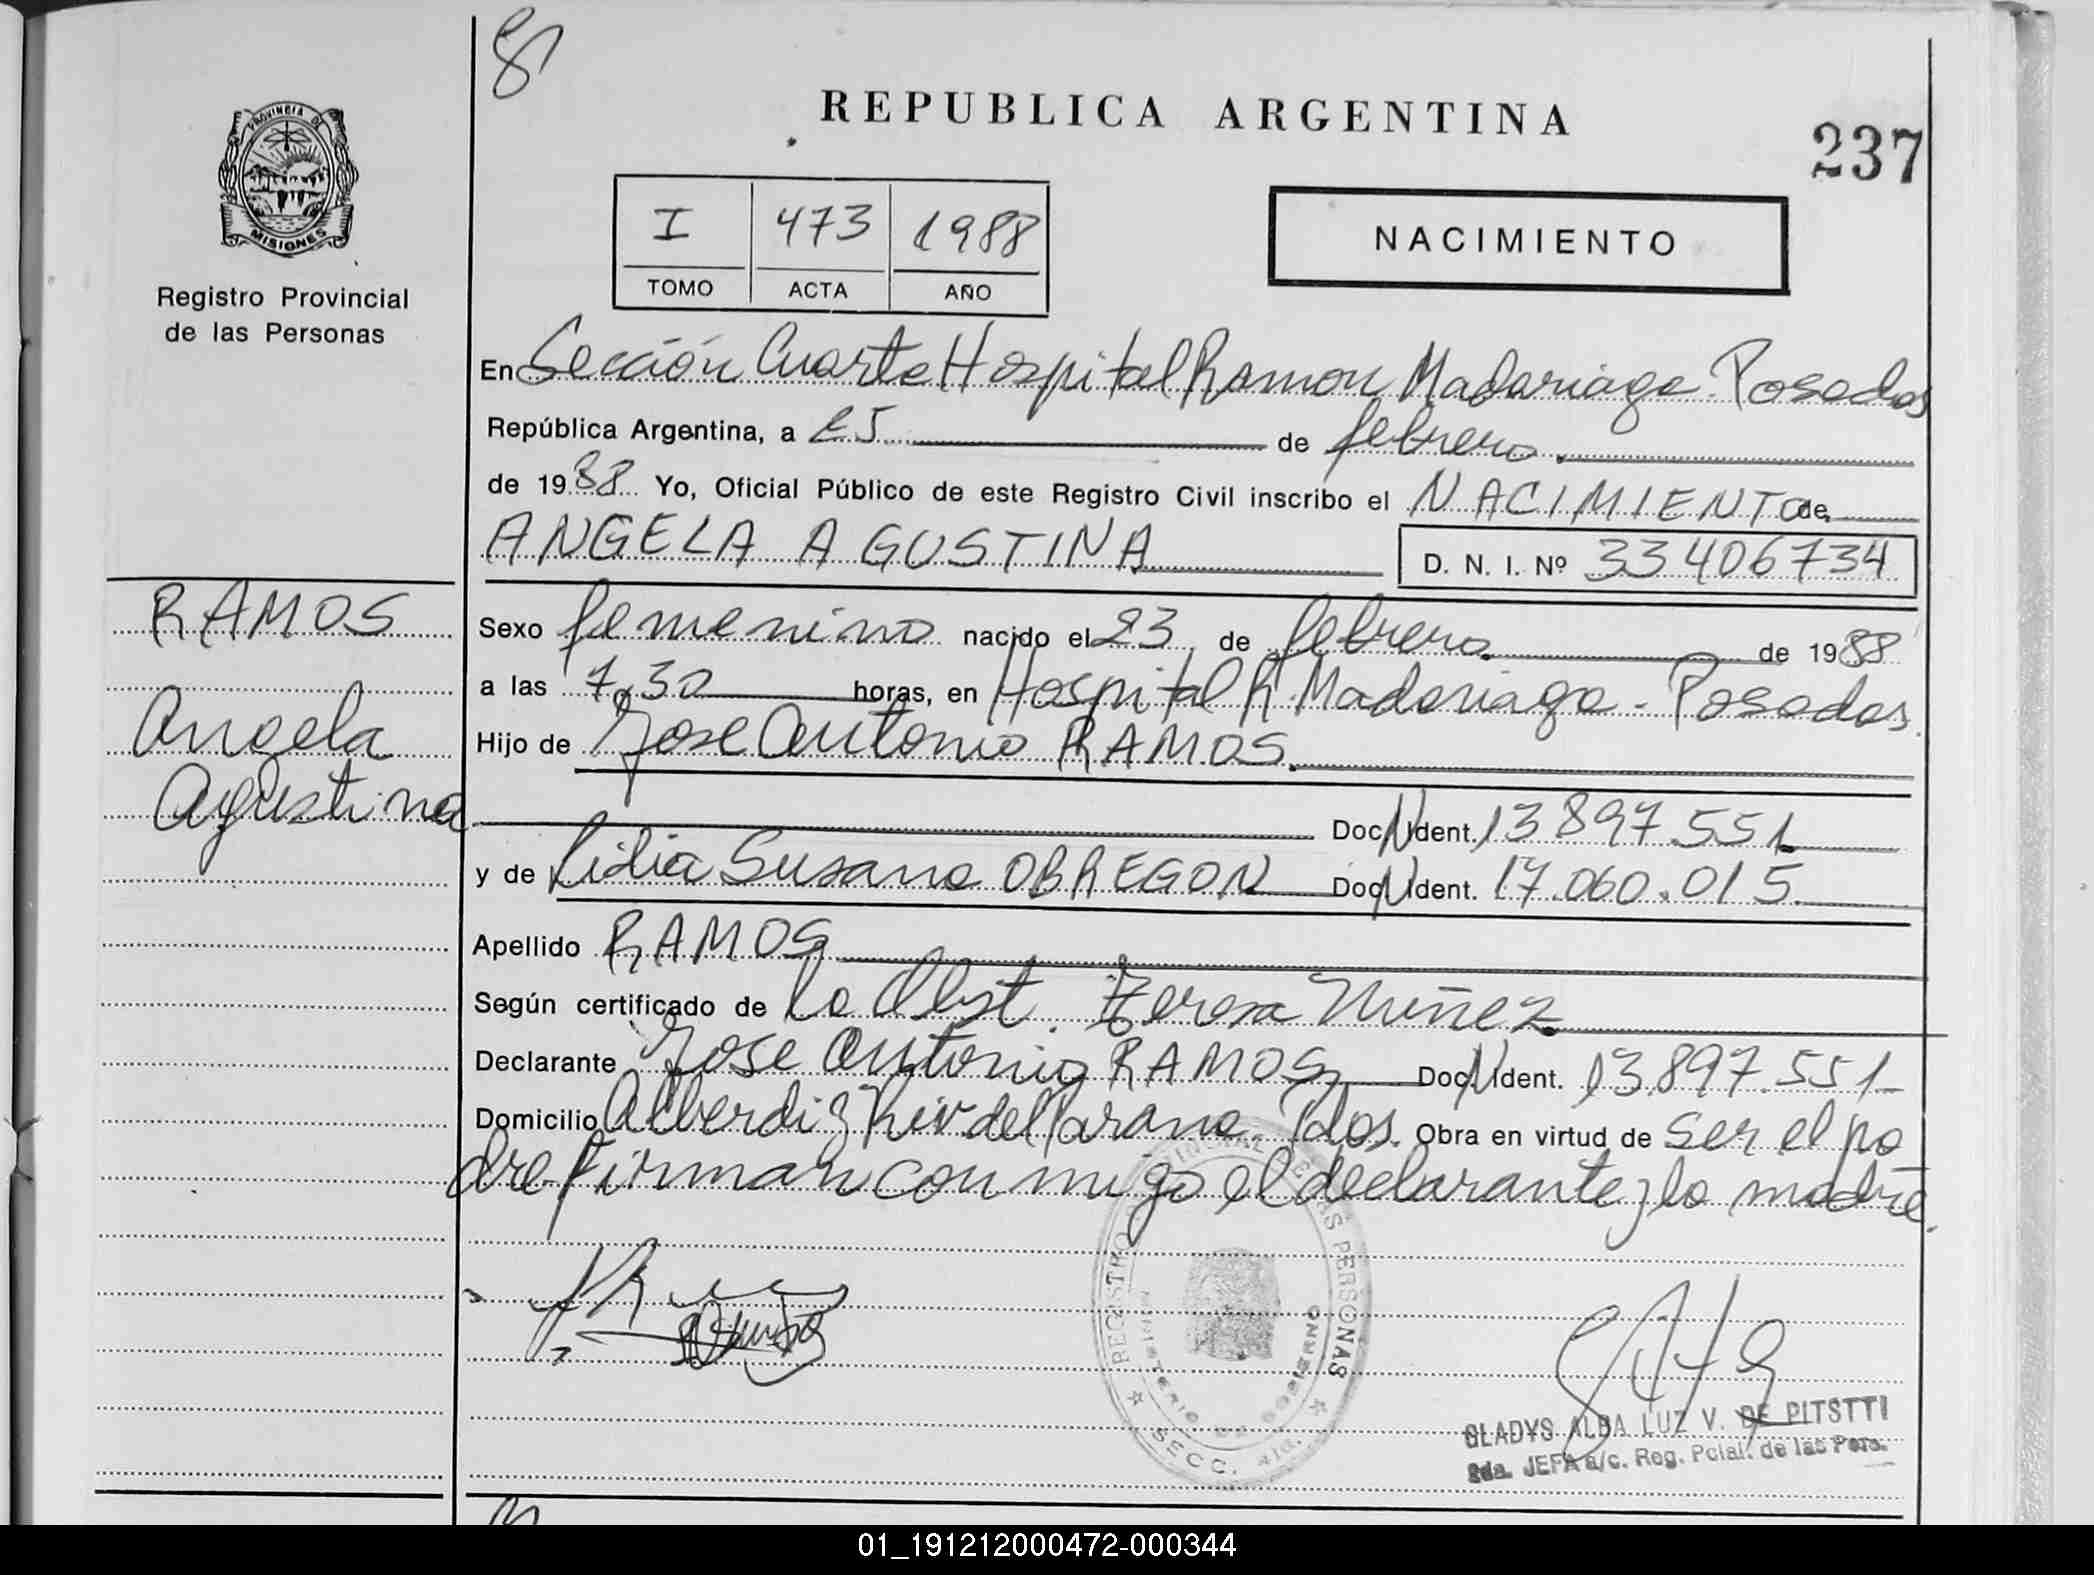 8
REPUBLICA ARGENTINA
237
PROVINCIA DE
MISIONES
Registro Provincial
de las Personas
I 473 1988
TOMO ACTA AÑO
NACIMIENTO
En Sección Cuarta Hospital Ramon Madariaga. Posadas
República Argentina, a 25 de febrero
de 1988 Yo, Oficial Público de este Registro Civil inscribo el NACIMIENTO de
ANGELA AGUSTINA D. N. I. Nº 33406734
RAMOS
Angela
Agustina
Sexo femenino nacido el 23 de febrero de 1988
a las 7,30 horas, en Hospital R. Madariaga - Posadas.
Hijo de Jose Antonio RAMOS.
Doc. N Ident. 13.897.551
y de Lidia Susana OBREGON Doc. N Ident. 17.060.015
Apellido RAMOS
Según certificado de la Obst. Teresa Nuñez
Declarante Jose Antonio RAMOS Doc. N Ident. 13.897.551
Domicilio Alberdi y Riv del Parana. Pdas. Obra en virtud de ser el pa
dre firman conmigo el declarante y la madre.
REGISTRO PROVINCIAL DE LAS PERSONAS
MINISTERIO DE GOBIERNO
SECC. 4ta.
GLADYS ALBA LUZ V. DE PITSTTI
2da. JEFA a/c. Reg. Pcial. de las Pers.
01_191212000472-000344